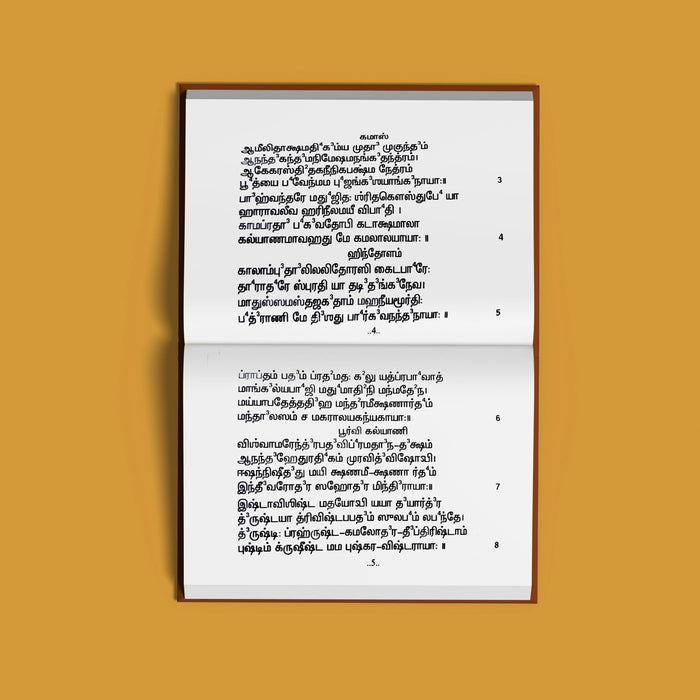 கமாஸ்
ஆமீலிதாக்ஷமதி⁴க³ம்ய முதா³ முகுந்த³ம்
ஆநந்த³கந்த³மநிமேஷமநங்க³தந்த்ரம்।
ஆகேகரஸ்தி²தகநீநிகபக்ஷ்ம நேத்ரம்
பூ⁴த்யை ப⁴வேந்மம பு⁴ஜங்க³ஶயாங்க³நாயா:॥ 3
பா³ஹ்வந்தரே மது⁴ஜித: ஶ்ரிதகௌஸ்துபே⁴ யா
ஹாராவலீவ ஹரிநீலமயீ விபா⁴தி ।
காமப்ரதா³ ப⁴க³வதோபி கடாக்ஷமாலா
கல்யாணமாவஹது மே கமலாலயாயா: ॥ 4
ஹிந்தோளம்
காலாம்பு³தா³லிலலிதோரஸி கைடபா⁴ரே:
தா⁴ராத⁴ரே ஸ்புரதி யா தடி³த³ங்க³நேவ।
மாதுஸ்ஸமஸ்தஜக³தாம் மஹநீயமூர்தி:
ப⁴த்³ராணி மே தி³ஶது பா⁴ர்க³வநந்த³நாயா: ॥ 5
..4..
ப்ராப்தம் பத³ம் ப்ரத²மத: க²லு யத்ப்ரபா⁴வாத்
மாங்க³ல்யபா⁴ஜி மது⁴மாதி²நி மந்மதே²ந।
மய்யாபதேத்ததி³ஹ மந்த²ரமீக்ஷணார்த⁴ம்
மந்தா³லஸம் ச மகராலயகந்யகாயா:॥ 6
பூர்வி கல்யாணி
விஶ்வாமரேந்த்³ரபத³விப்⁴ரமதா³ந-த³க்ஷம்
ஆநந்த³ஹேதுரதி⁴கம் முரவித்³விஷோபி।
ஈஷந்நிஷீத³து மயி க்ஷணமீ-க்ஷணா ர்த⁴ம்
இந்தீ³வரோத³ர ஸஹோத³ர மிந்தி³ராயா:॥ 7
இஷ்டாவிஶிஷ்ட மதயோபி யயா த³யார்த்³ர
த்³ருஷ்டயா த்ரிவிஷ்டபபத³ம் ஸுலப⁴ம் லப⁴ந்தே।
த்³ருஷ்டி: ப்ரஹ்ருஷ்ட-கமலோத³ர-தீ³ப்திரிஷ்டாம்
புஷ்டிம் க்ருஷீஷ்ட மம புஷ்கர-விஷ்டராயா: ॥ 8
..5..